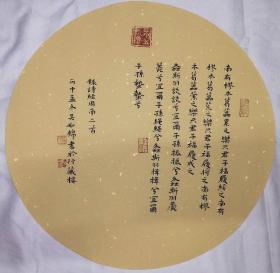 南有樛木葛藟纍之樂只君子福履綏之南有
樛木葛藟荒之樂只君子福履將之南有樛
木葛藟縈之樂只君子福履成之
螽斯羽詵詵兮宜爾子孫振振兮螽斯羽薨
薨兮宜爾子孫繩繩兮螽斯羽揖揖兮宜爾
子孫蟄蟄兮
錄詩經周南二首
丙申孟冬書於行藏樓